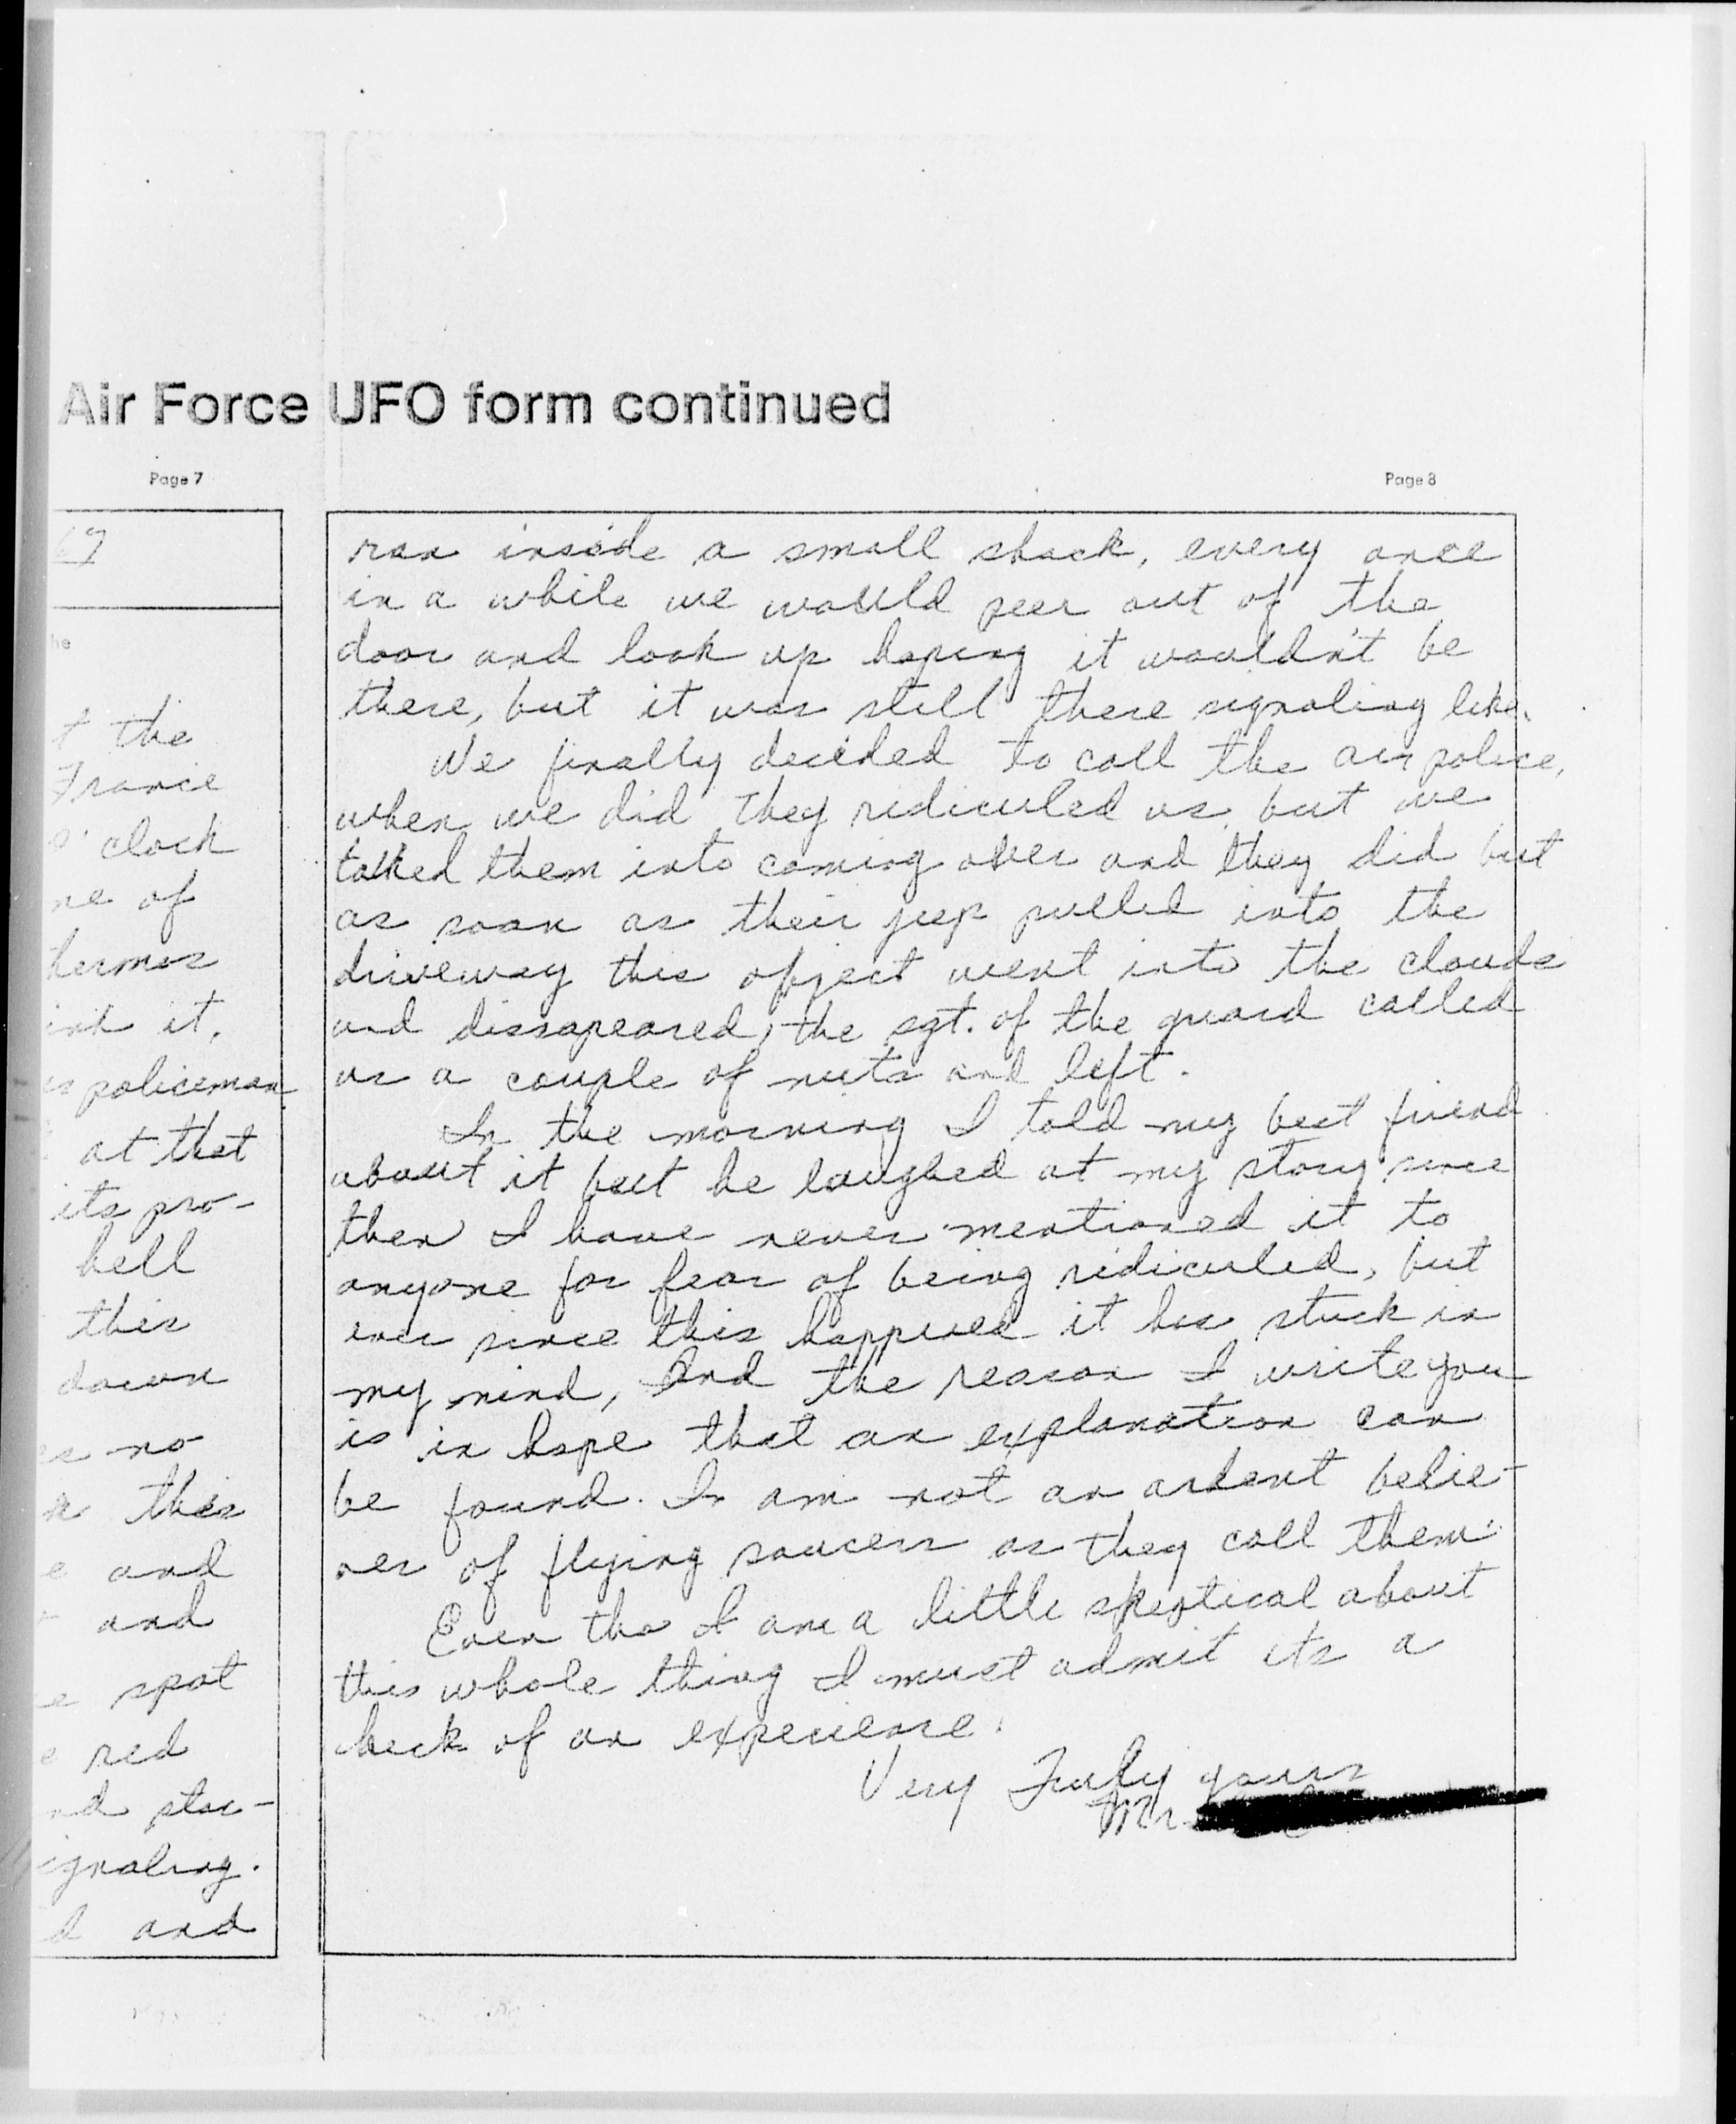 Air Force UFO form continued
Page 7
67
he
t the
France
o'clock
ne of
hermos
ink it.
policeman
at that
its pro-
hell
this
down
no
this
and
and
spot
red
nd star-
ignaling.
d and
Page 8
ran inside a small shack, every once
in a while we would peer out of the
door and look up hoping it wouldn't be
there, but it was still there signaling like.
We finally decided to call the air police,
when we did they ridiculed us but we
talked them into coming over and they did but
as soon as their jeep pulled into the
driveway this object went into the clouds
and dissapeared, the sgt. of the guard called
us a couple of nuts and left.
In the morning I told my best friend
about it but he laughed at my story since
then I have never mentioned it to
anyone for fear of being ridiculed, but
ever since this happened it has stuck in
my mind, and the reason I write you
is in hope that an explanation can
be found. I am not an ardent belie-
ver of flying saucers as they call them.
Even tho I am a little skeptical about
this whole thing I must admit its a
heck of an experience.
Very Truly yours
Mr.